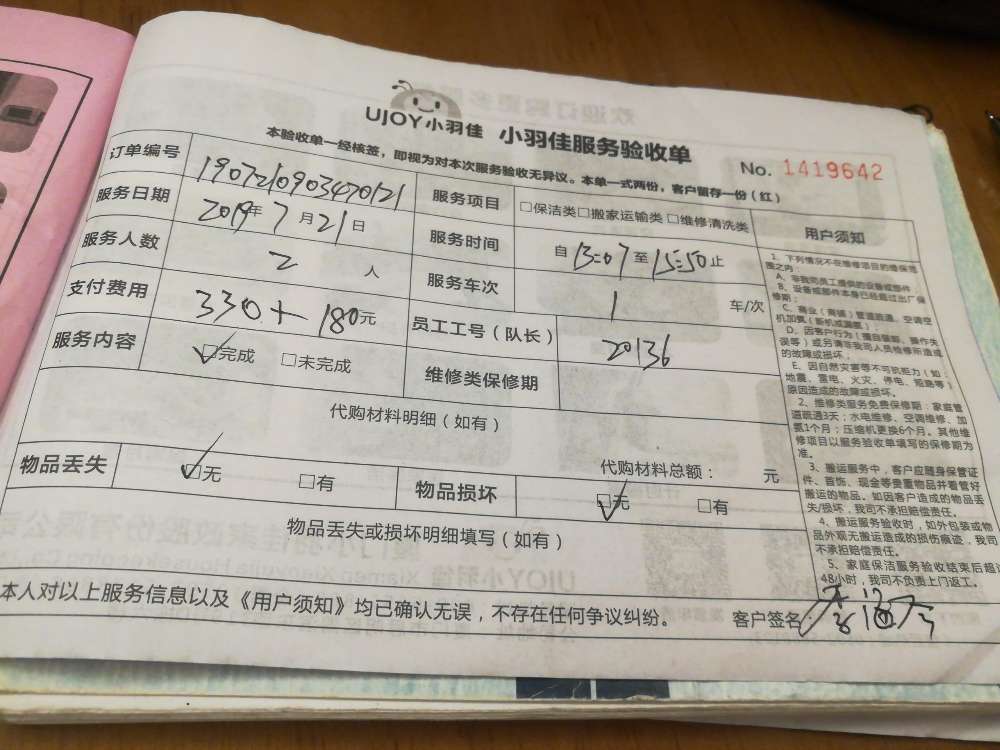 UJOY小羽佳 小羽佳服务验收单
本验收单一经核签，即视为对本次服务验收无异议。本单一式两份，客户留存一份（红）
No. 1419642
订单编号 1907210903470121 服务项目 □保洁类□搬家运输类□维修清洗类
服务日期 2019年7月21日 服务时间 自13:07至15:50止
服务人数 2人 服务车次 1车/次
支付费用 330+180元 员工工号（队长） 20136
服务内容 ☑完成 □未完成 维修类保修期
代购材料明细（如有）
代购材料总额： 元
物品丢失 ☑无 □有 物品损坏 ☑无 □有
物品丢失或损坏明细填写（如有）
用户须知
1、下列情况不在维修项目的维保范
围之内：
A、非我司员工提供的设备或部件；
B、设备或部件本身已经超过出厂保
修期；
C、商业（商铺）管道疏通、空调空
机加氨（新机或漏氨）；
D、因客户行为（擅自移动、操作失
误等）或另请非我司人员检修所造成
的故障或损坏，
E、因自然灾害等不可抗力（如：
地震、雷电、火灾、停电、短路等）
原因造成的故障或损坏。
2、维修类服务免费保修期：家庭管
道疏通3天；水电维修、空调维修、加
氨1个月；压缩机更换6个月。其他维
修项目以服务验收单填写的保修期为
准。
3、搬运服务中，客户应随身保管证
件、首饰、现金等贵重物品并看管好
搬运的物品。如因客户造成的物品丢
失/损坏，我司不承担赔偿责任。
4、搬运服务验收时，如外包装或物
品外观无搬运造成的损伤痕迹，我司
不承担赔偿责任。
5、家庭保洁服务验收结束后超过
48小时，我司不负责上门返工。
本人对以上服务信息以及《用户须知》均已确认无误，不存在任何争议纠纷。 客户签名：